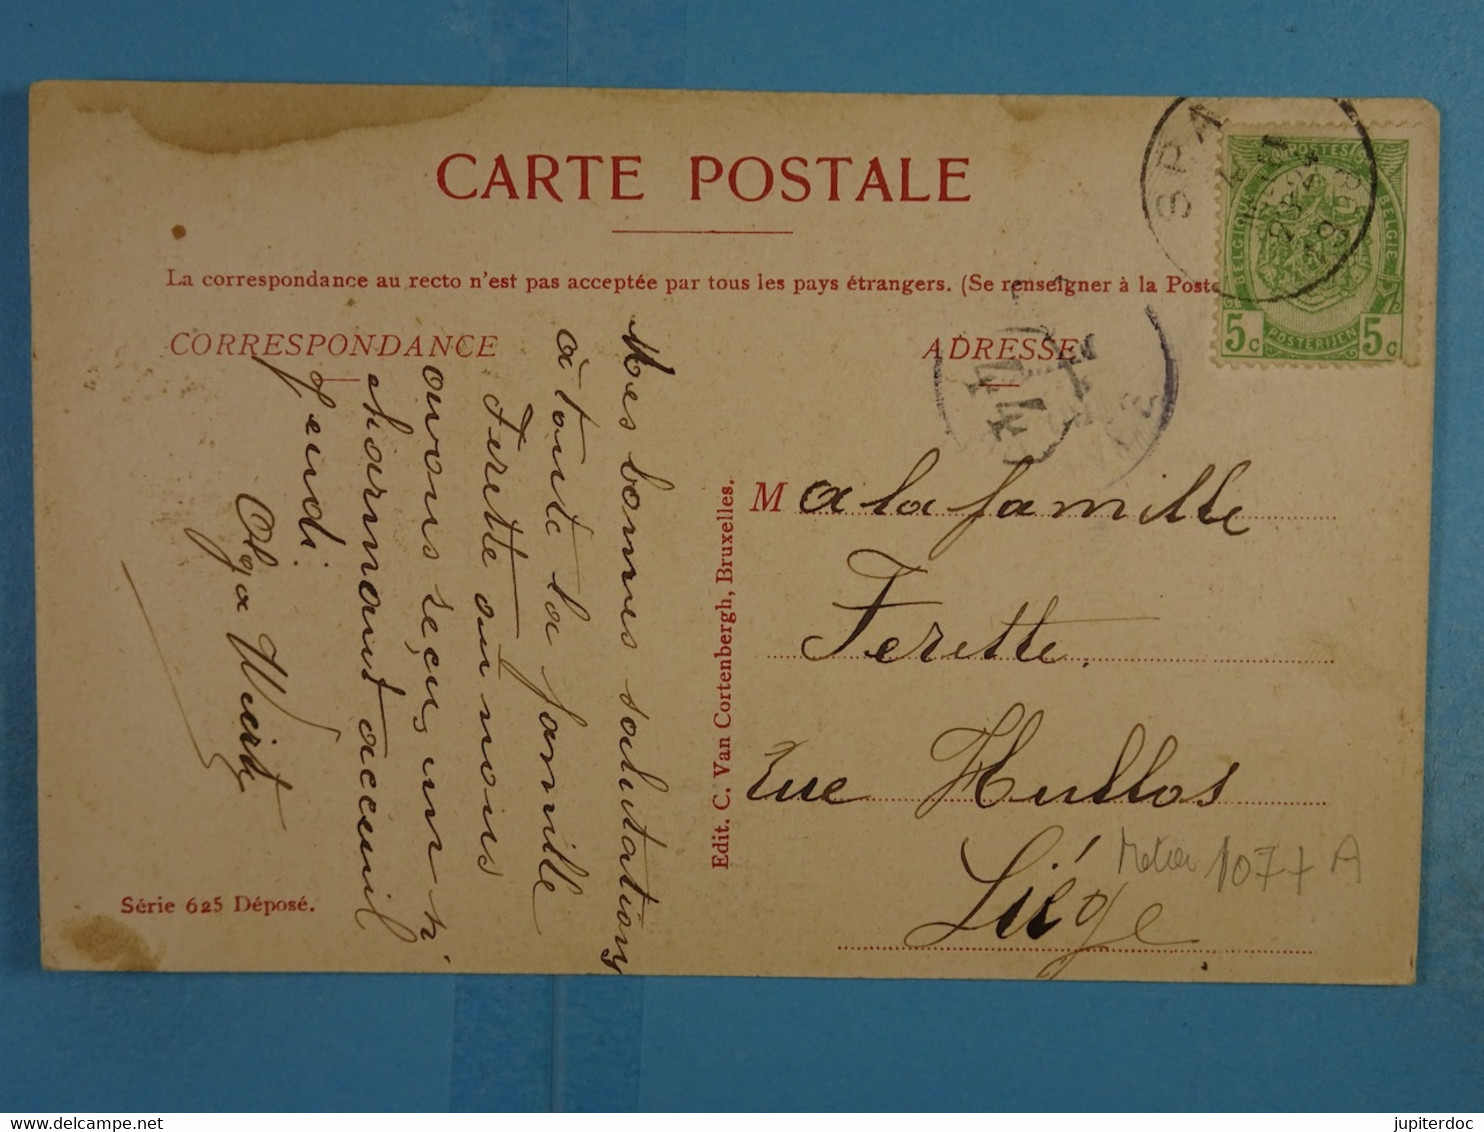 CARTE POSTALE
La correspondance au recto n'est pas acceptée par tous les pays étrangers. (Se renseigner à la Poste
CORRESPONDANCE
Mes bonnes salutations
à toute la famille
Ferette où nous
avons reçu un si
charmant accueil
jeudi.
Olga
Série 625 Déposé.
Edit. C. Van Cortenbergh, Bruxelles.
ADRESSE
M a la famille
Ferette.
rue Hullos
Liége
1077 A
SPA
1908
POSTES
BELGIQUE
BELGIE
5c POSTERIJEN 5c
jupiterdoc
delcampe.net